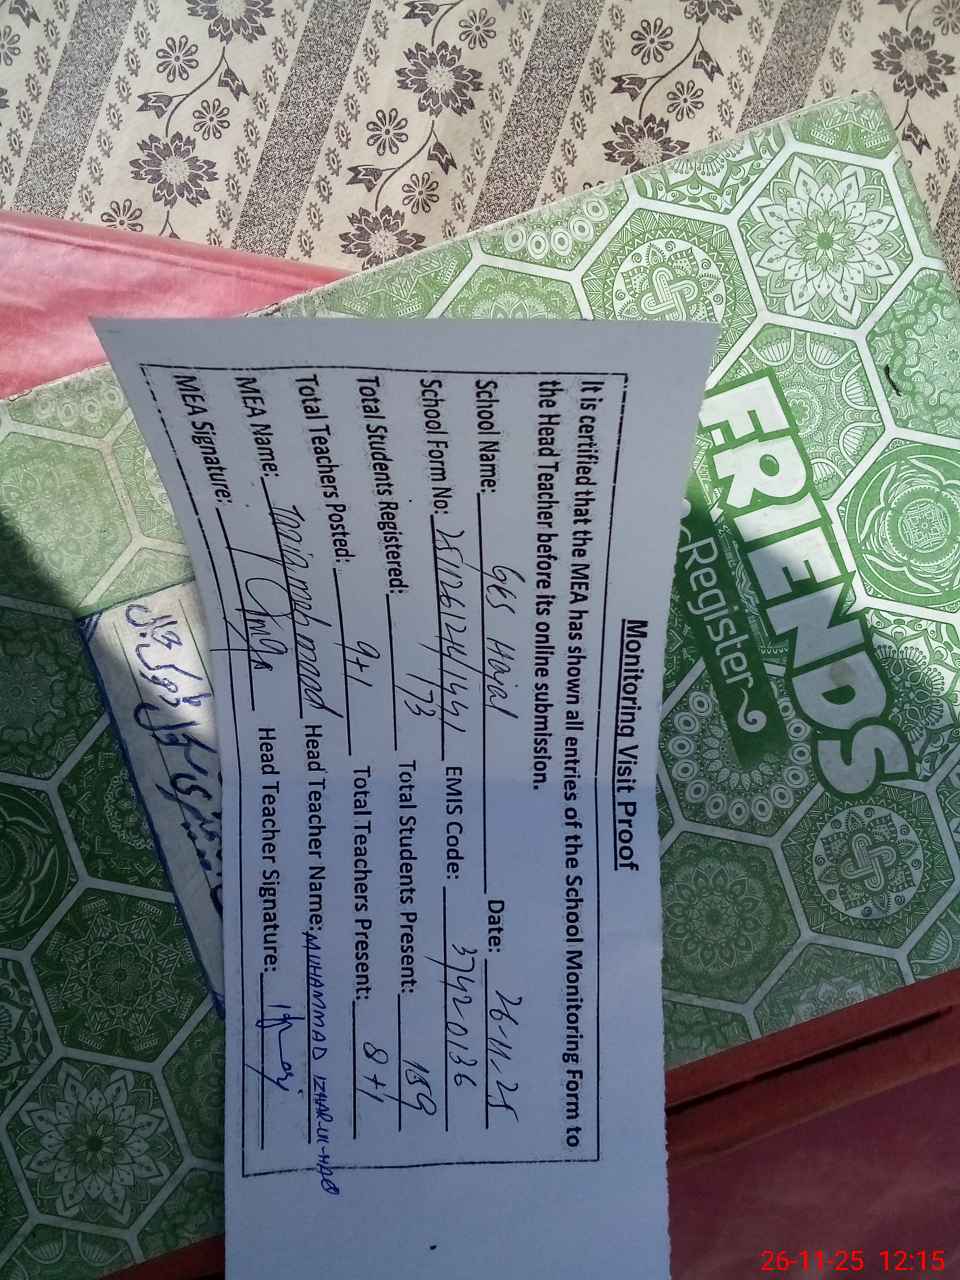 Monitoring Visit Proof
It is certified that the MEA has shown all entries of the School Monitoring Form to
the Head Teacher before its online submission.
School Name: GES Hayal Date: 26-11-25
School Form No: EMIS Code: 37420136
Total Students Registered: 173 Total Students Present: 159
Total Teachers Posted: 9+1 Total Teachers Present: 8+1
MEA Name: mehmood Head Teacher Name: MUHAMMAD IZHAR-UL-HAQ
MEA Signature: Head Teacher Signature:
FRIENDS
Register
26-11-25 12:15